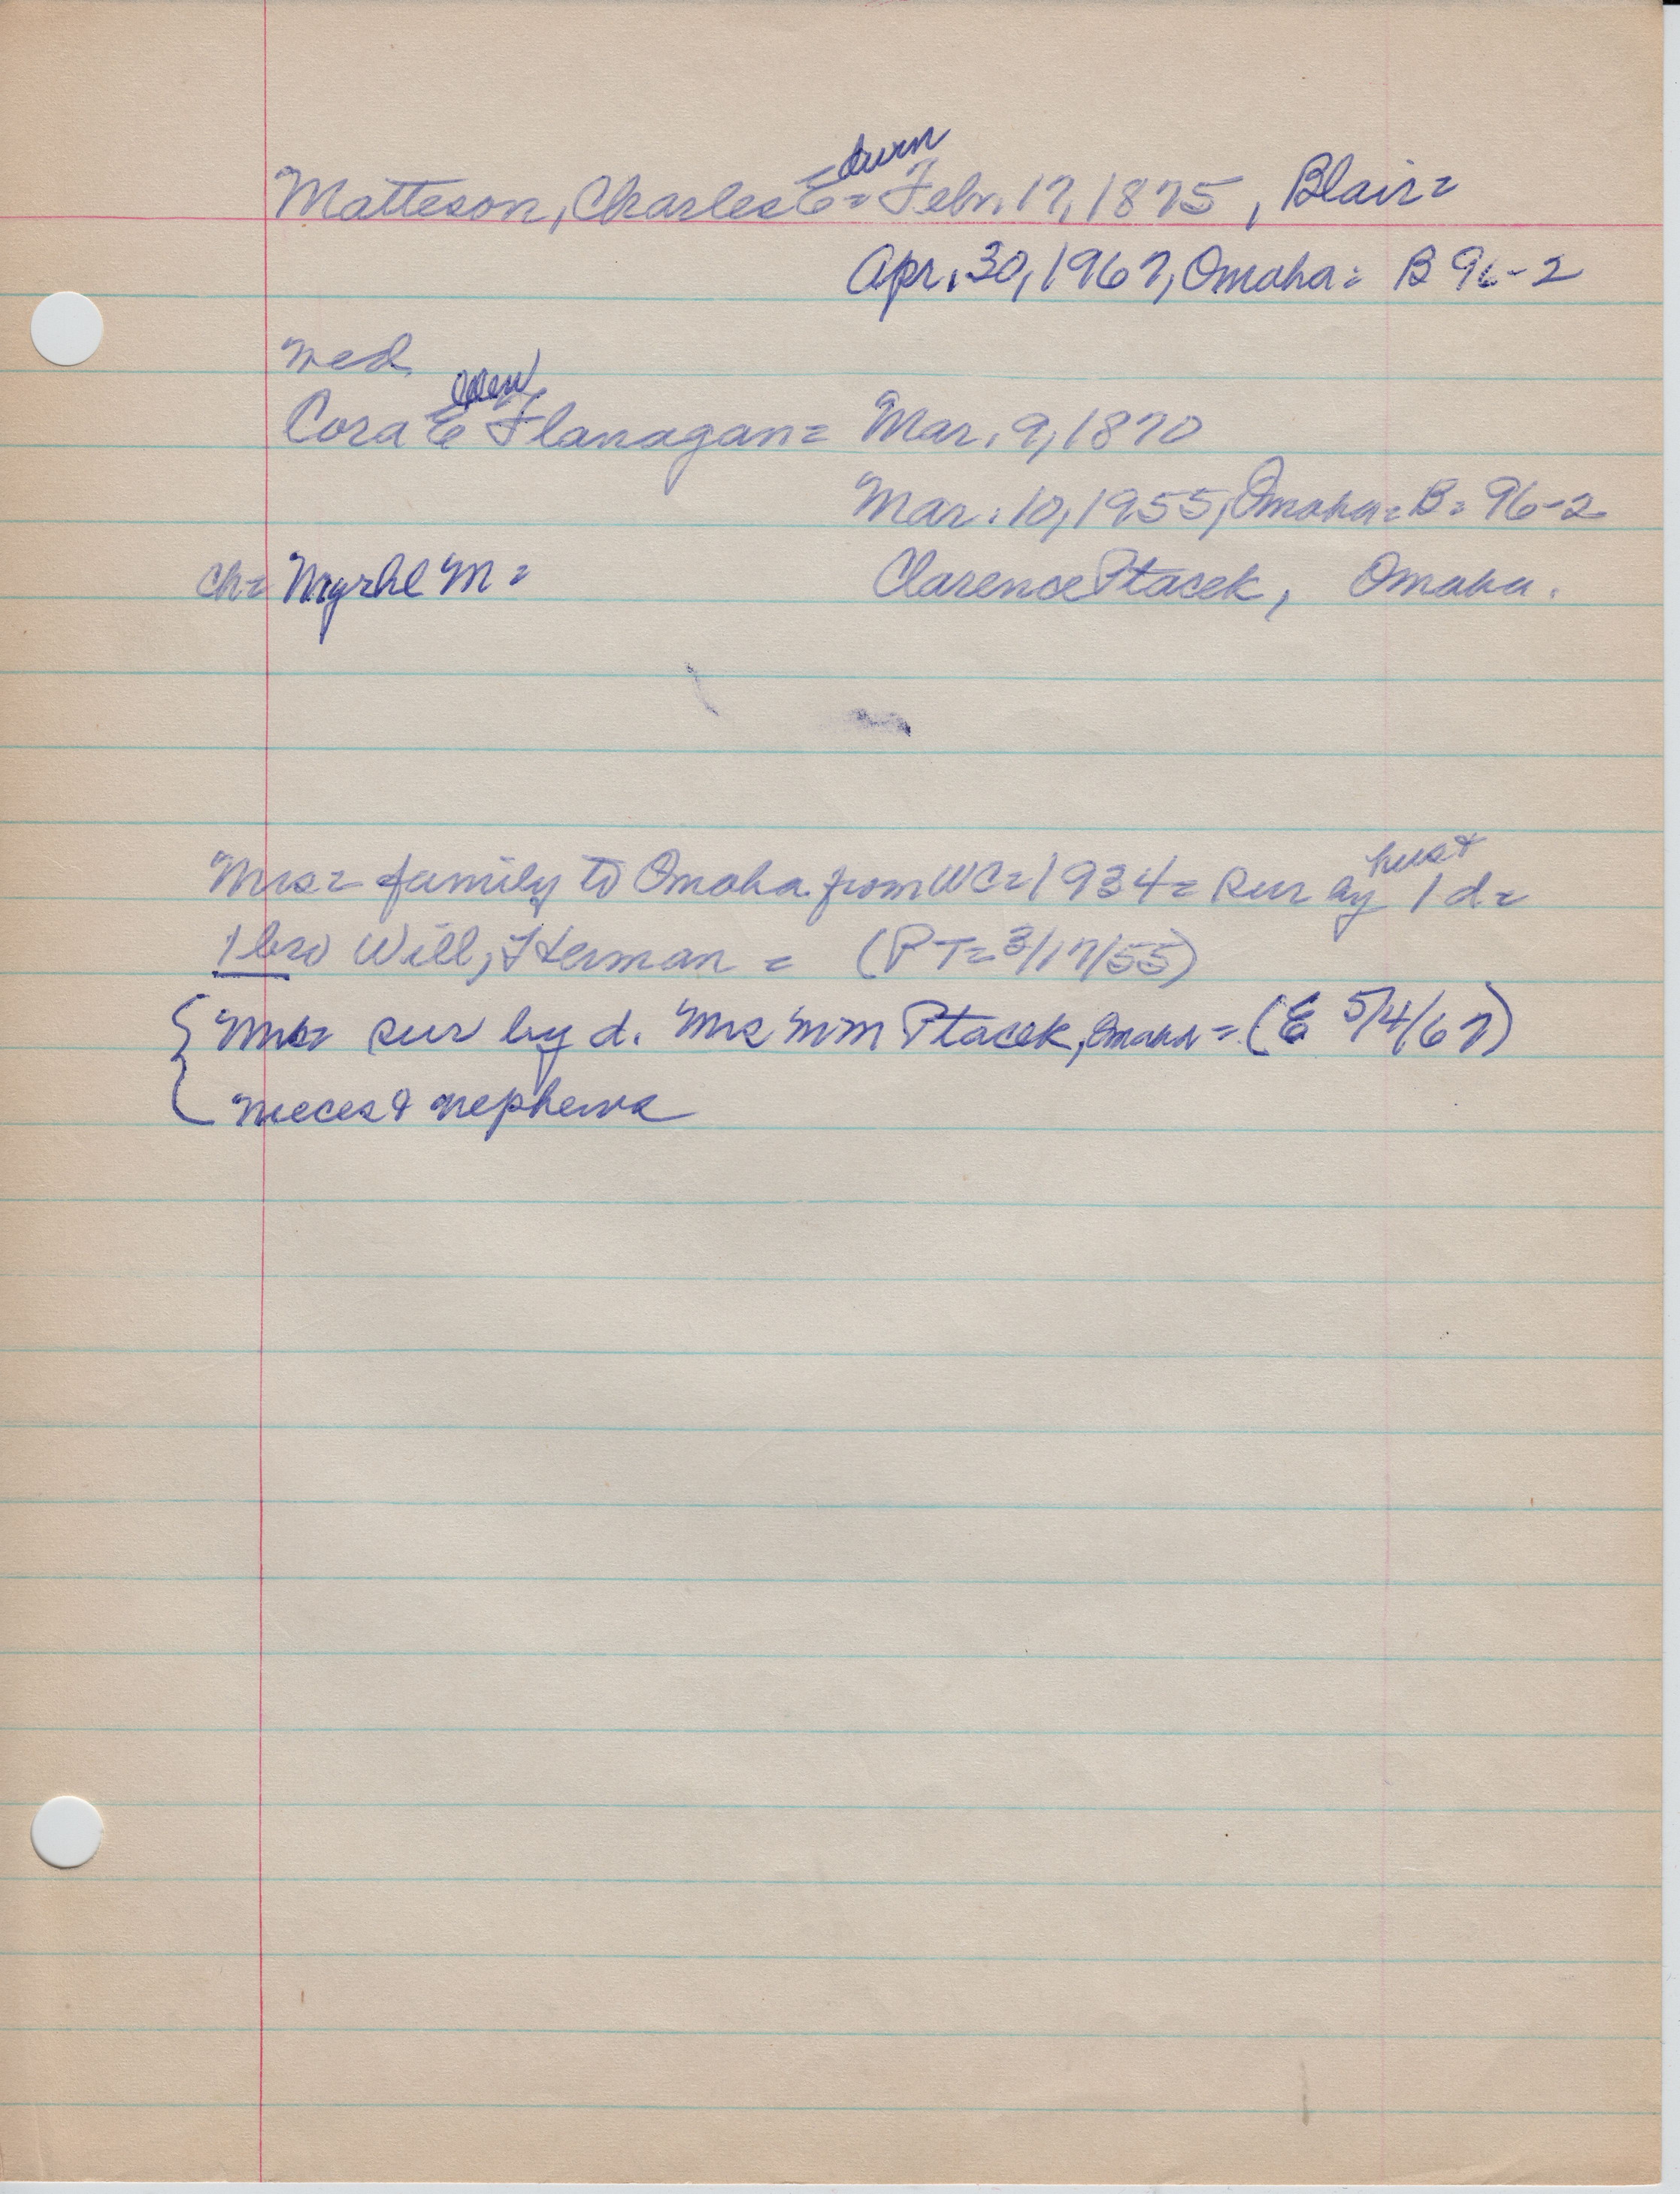 Matteson, Charles Edwin = Febr. 17, 1875, Blair =
Apr. 30, 1967, Omaha = B 96-2
wed
Cora Ellen Flanagan = Mar. 9, 1870
Mar. 10, 1955, Omaha = B = 96-2
ch = Myrhl M = Clarence Ptacek, Omaha.
Mrs = family to Omaha from WC = 1934 = sur by hus & 1 d =
1 bro Will, Herman = (PT = 3/17/55)
sur by d. Mrs MM Ptacek, Omaha = (E 5/4/67)
nieces & nephews